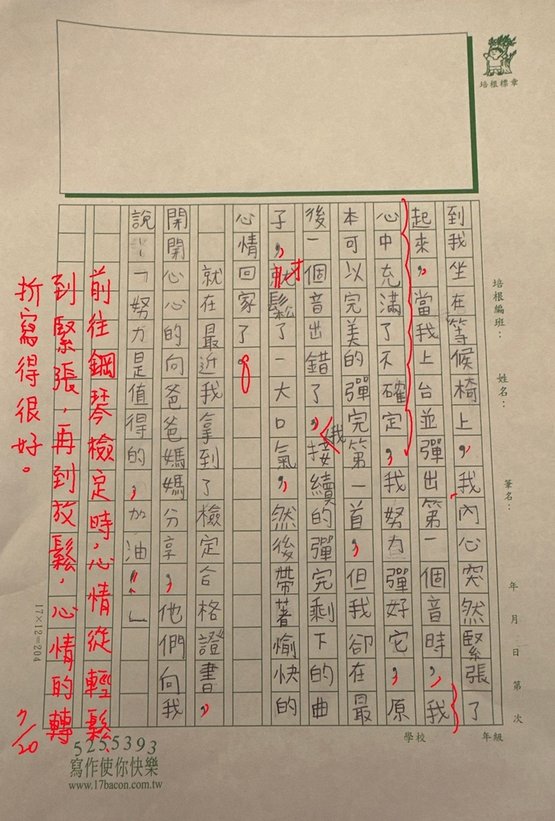 培根標章
培根編班：
姓名：
筆名：
年 月 日 第 次
學校 年級
到我坐在等候椅上，我內心突然緊張了
起來，當我上台並彈出第一個音時，我
心中充滿了不確定，我努力彈好它，原
本可以完美的彈完第一首，但我卻在最
後一個音出錯了，我接續的彈完剩下的曲
子，就才鬆了一大口氣，然後帶著愉快的
心情回家了。
就在最近我拿到了檢定合格證書，
開開心心的向爸爸媽媽分享，他們向我
說：「努力是值得的，加油！」
前往鋼琴檢定時，心情從輕鬆
到緊張，再到放鬆，心情的轉
折寫得很好。
9/20
17×12=204
5255393
寫作使你快樂
www.17bacon.com.tw